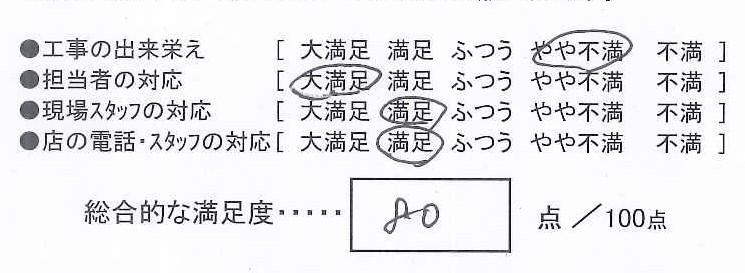 ●工事の出来栄え [ 大満足 満足 ふつう やや不満 不満 ]
●担当者の対応 [ 大満足 満足 ふつう やや不満 不満 ]
●現場スタッフの対応 [ 大満足 満足 ふつう やや不満 不満 ]
●店の電話・スタッフの対応 [ 大満足 満足 ふつう やや不満 不満 ]
総合的な満足度・・・・・ 80 点 ／100点